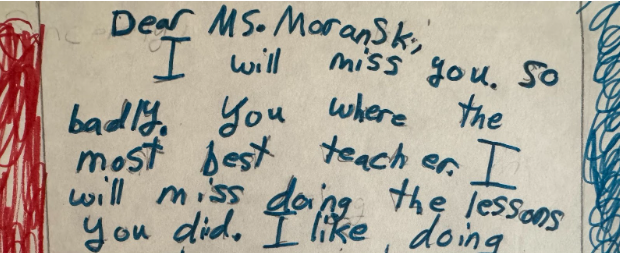 Dear Ms. Moranski,
I will miss you. so
badly. You where the
most best teacher. I
will miss doing the lessons
you did. I like doing